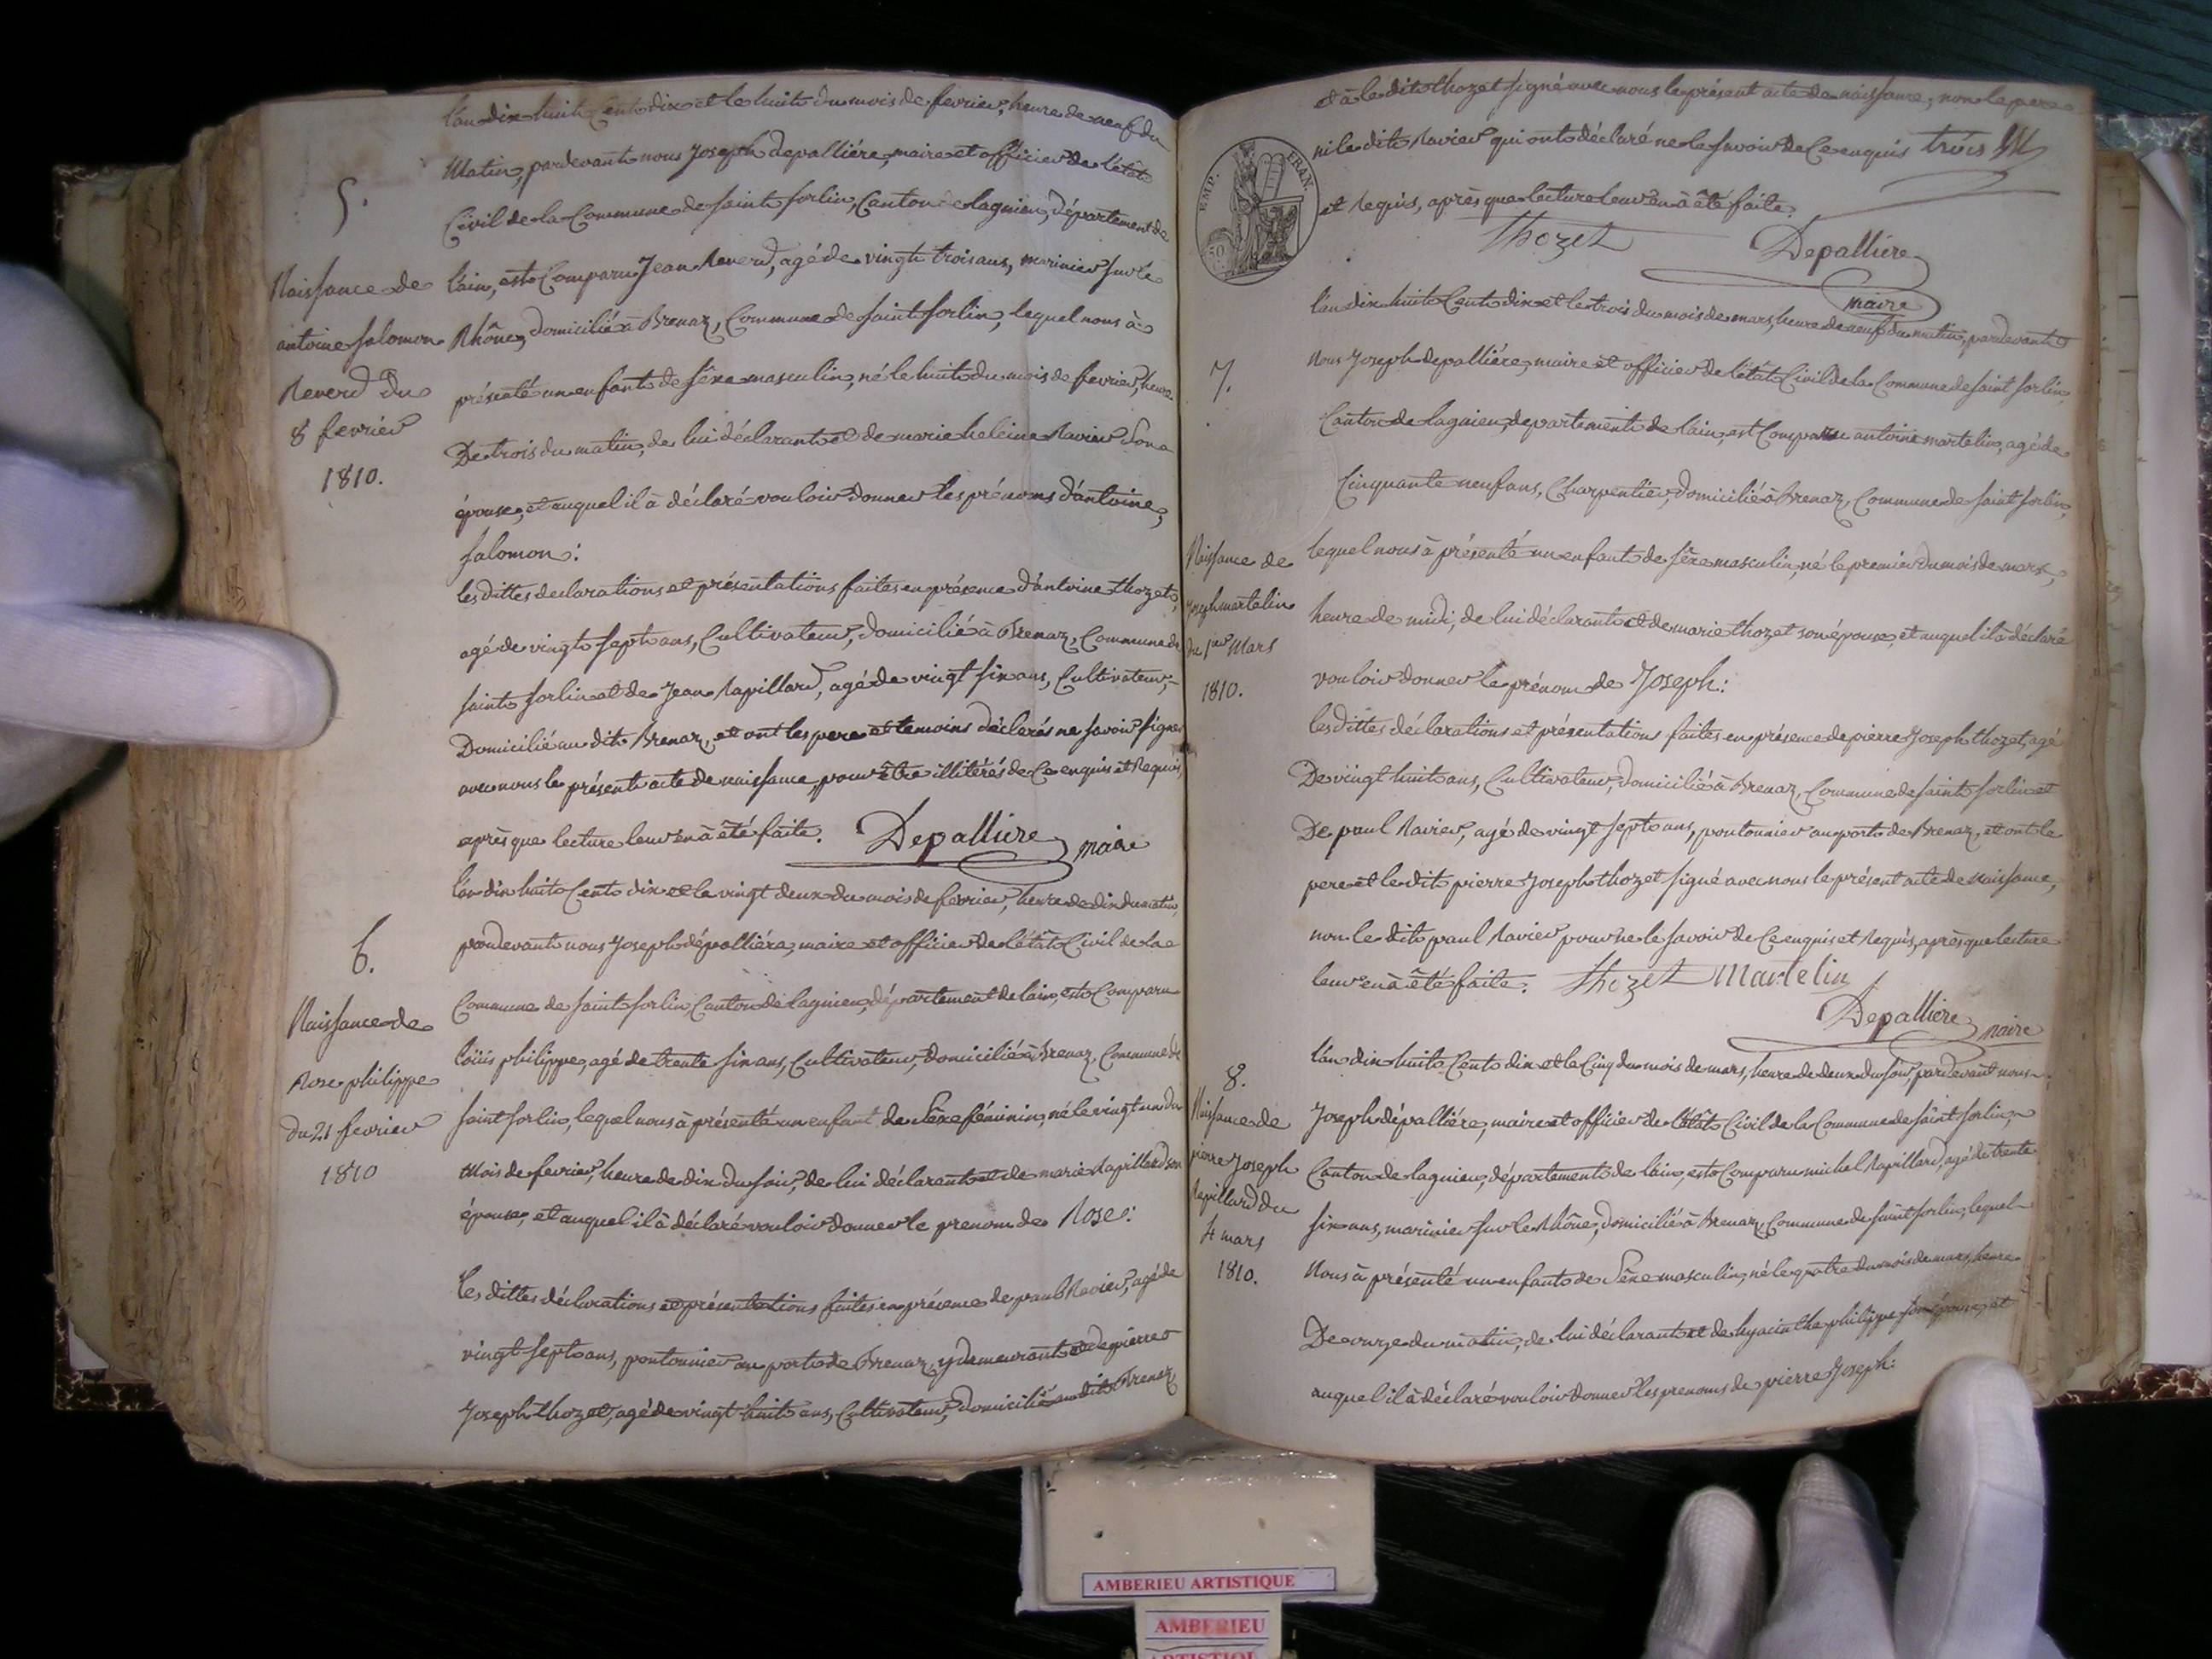 l'an dix huit cent dix et le huit du mois de fevrier, heure de neuf du
Matin, pardevant nous Joseph depalliére, maire et officier de l'état
5.
Civil de la Commune de saint sorlin, Canton de lagnieu, département de
Naissance de
antoine salomon
Reverd du
8 fevrier
1810.
l'ain, est Comparu Jean Reverd, agé de vingt trois ans, marinier sur le
Rhône, domicilié à Brenaz, Commune de saint sorlin, lequel nous à
présenté un enfant de sêxe masculin, né le huit du mois de fevrier, heure
De trois du matin, de lui déclarant et de marie heleine Ravier Son
épouse, et auquel il à déclaré vouloir donner les prénoms d'antoine,
salomon:
les dittes declarations et présentations faites en présence d'antoine thozet,
agé de vingt sept ans, Cultivateur, domicilié à Brenaz, Commune de
saint sorlin et de Jean Rapillard, agé de vingt six ans, Cultivateur,
Domicilié au dit Brenaz, et ont les pere et temoins déclarés ne savoir signer
avec nous le présent acte de naissance, pour être illitérés de Ce enquis et Requis,
après que lecture leur en à été faite. Depalliere maire
l'an dix huit Cent dix et le vingt deux du mois de fevrier, heure de dix du matin,
6.
pardevant nous Joseph dépalliére, maire et officier de l'état Civil de la
Commune de saint sorlin, Canton de lagnieu, département de lain, est Comparu
Naissance de
Rose philippe
du 21 fevrier
1810
loüis philippe, agé de trente six ans, Cultivateur, domicilié à Brenaz, Commune de
saint sorlin, lequel nous à présenté un enfant de Sêxe féminin, né le vingt un du
Mois de fevrier, heure de dix du soir, de lui déclarant et de marie Rapillard son
épouse, et auquel il à déclaré vouloir donner le prenom de Rose:
les dittes déclarations et présentations faites en présence de paul Ravier, agé de
vingt sept ans, pontonnier au port de Brenaz, y demeurant et de pierre
Joseph thozet, agé de vingt huit ans, Cultivateur, domicilié au dit Brenaz
et à le dit thozet signé avec nous le présent acte de naissance, non le pere
ni le dit Ravier qui ont déclaré ne le savoir de Ce enquis trois
et Requis, après que lecture leur en à été faite.
EMP. FRAN.
50
Thozet Depalliere
maire
l'an dix huit Cent dix et le trois du mois de mars, heure de neuf du matin, pardevant
7.
Nous Joseph depalliére, maire et officier de l'état Civil de la Commune de saint sorlin,
Canton de lagnieu, departement de lain, est Comparu antoine martelin, agé de
Cinquante neuf ans, Charpentier, domicilié à Brenaz, Commune de saint sorlin,
Naissance de
Joseph martelin
du 1er Mars
1810.
lequel nous à présenté un enfant de sêxe masculin, né le premier du mois de mars,
heure de midi, de lui déclarant et de marie thozet son épouse, et auquel il à déclaré
vouloir donner le prénom de Joseph:
les dittes déclarations et présentations faites en présence de pierre Joseph thozet, agé
De vingt huit ans, Cultivateur, domicilié à Brenaz, Commune de saint sorlin et
De paul Ravier, agé de vingt sept ans, pontonnier au port de Brenaz, et ont le
pere et le dit pierre Joseph thozet signé avec nous le présent acte de naissance,
non le dit paul Ravier pour ne le savoir de Ce enquis et Requis, après que lecture
leur en à été faite. Thozet Martelin
Depalliere maire
l'an dix huit Cent dix et le Cinq du mois de mars, heure de deux du soir, pardevant nous
8.
Naissance de
pierre Joseph
Rapillard du
4 mars
1810.
Joseph dépalliére, maire et officier de l'état Civil de la Commune de saint sorlin,
Canton de lagnieu, département de lain, est Comparu michel Rapillard, agé de trente
six ans, marinier sur le Rhône, domicilié à Brenaz, Commune de saint sorlin, lequel
Nous à présenté un enfant de Sêxe masculin, né le quatre du mois de mars, heure
De onze du matin, de lui déclarant et de hyacinthe philippe son épouse, et
auquel il à déclaré vouloir donner les prenoms de pierre Joseph:
AMBERIEU ARTISTIQUE
AMBERIEU
ARTISTIQUE